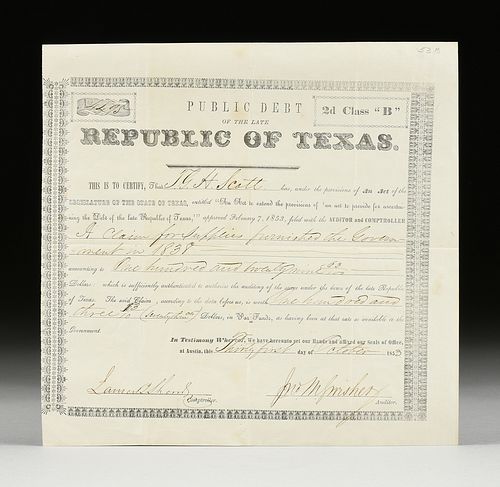 53 m
PUBLIC DEBT
OF THE LATE
2d Class "B"
REPUBLIC OF TEXAS.
THIS IS TO CERTIFY, That T. G. H. Scott has, under the provisions of An Act of the
LEGISLATURE OF THE STATE OF TEXAS, entitled "An Act to extend the provisions of 'an act to provide for ascertaining
the Debt of the late Republic of Texas,'" approved February 7, 1853, filed with the AUDITOR and COMPTROLLER
A Claim for Supplies furnished the Govern-
ment in 1838
amounting to One hundred and twenty nine
Dollars; which is sufficiently authenticated to authorize the auditing of the same under the laws of the late Republic
of Texas. The said Claim, according to the data before us, is worth One hundred and
three Dollars, in Par Funds, as having been at that rate so available to the
Government.
In Testimony Whereof, We have hereunto set our Hands and affixed our Seals of Office,
at Austin, this Thirty first day of October 185
James B Shaw Jno M Swisher
Comptroller. Auditor.